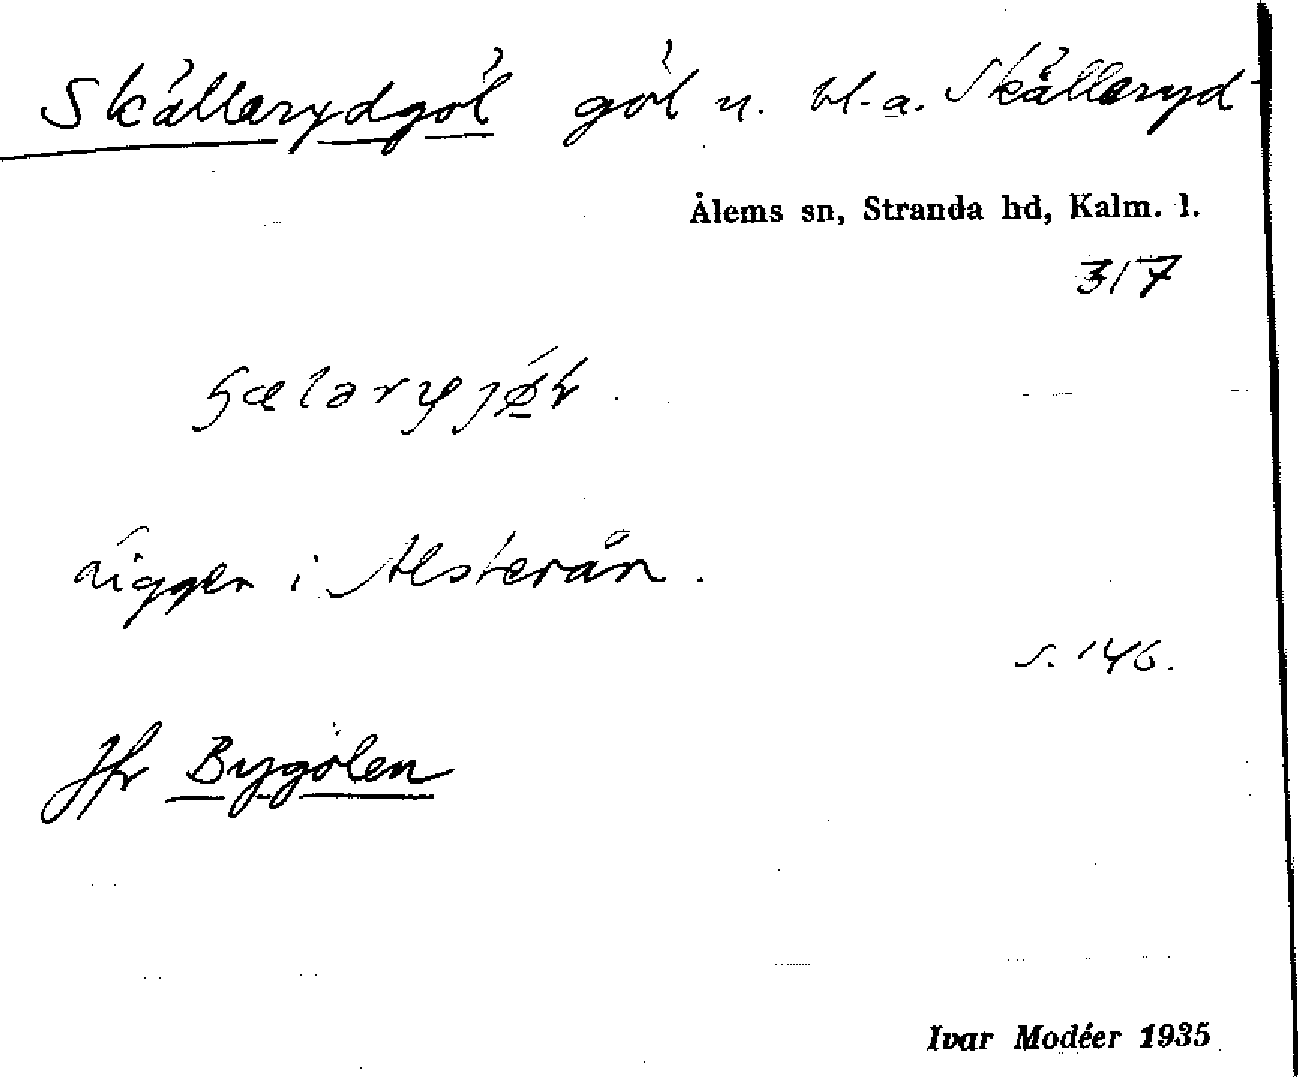 Skällerydgöl göl u. bl. a. Skälleryd
Ålems sn, Stranda hd, Kalm. l.
317
Ligger i Alsterån.
s. 146.
Jfr Bygölen
Ivar Modéer 1935